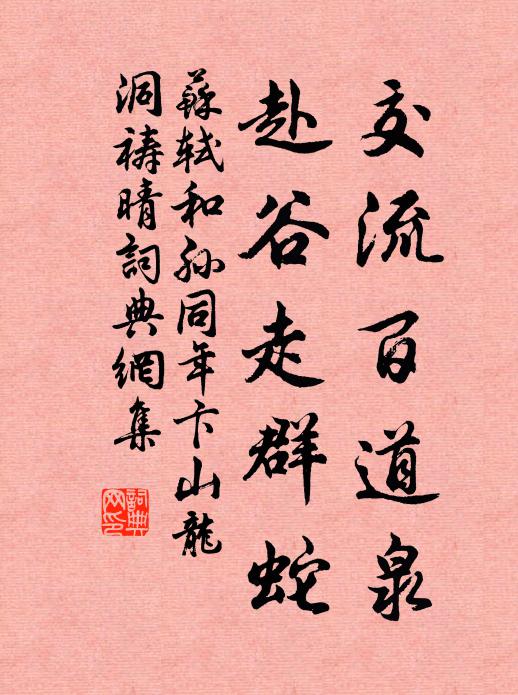 交流百道泉
赴谷走群蛇
蘇軾和孙同年卞山龍
洞禱晴詞典網集
詞典网印